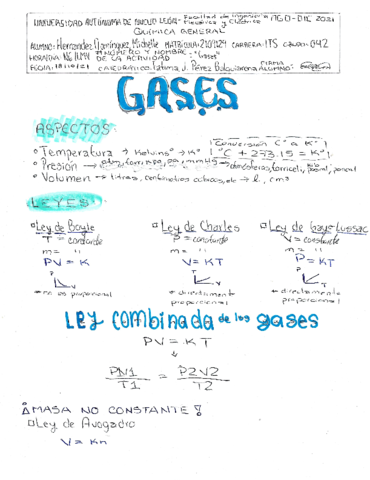 UNIVERSIDAD AUTÓNOMA DE NUEVO LEÓN - Facultad de Ingeniería Mecánica y Eléctrica AGO-DIC 2021
QUÍMICA GENERAL
ALUMNO: Hernandez Dominguez Michelle MATRICULA: CARRERA: ITS GRUPO: 042
NÚMERO Y NOMBRE DE LA ACTIVIDAD "Gases"
FECHA: 18/10/21 FIRMA ALUMNO:
GASES
ASPECTOS
Conversión C° a K°
° Temperatura → Kelvins° → K° °C + 273.15 = K°
° Presión → atm, torr, psi, pa, mmHg → atmósferas, torricelli, pascal
° Volumen → litros, centímetros cúbicos, etc → l, cm³
LEYES
Ley de Boyle
T = constante
m = "
PV = K
P
V
inv. proporcional
Ley de Charles
P = constante
m = "
V = KT
V
T
directamente proporcional
Ley de Gay Lussac
V = constante
m = "
P = KT
P
T
directamente proporcional
LEY COMBINADA de los gases
PV = KT
PV1 / T1 = P2V2 / T2
¡MASA NO CONSTANTE!
Ley de Avogadro
V = Kn